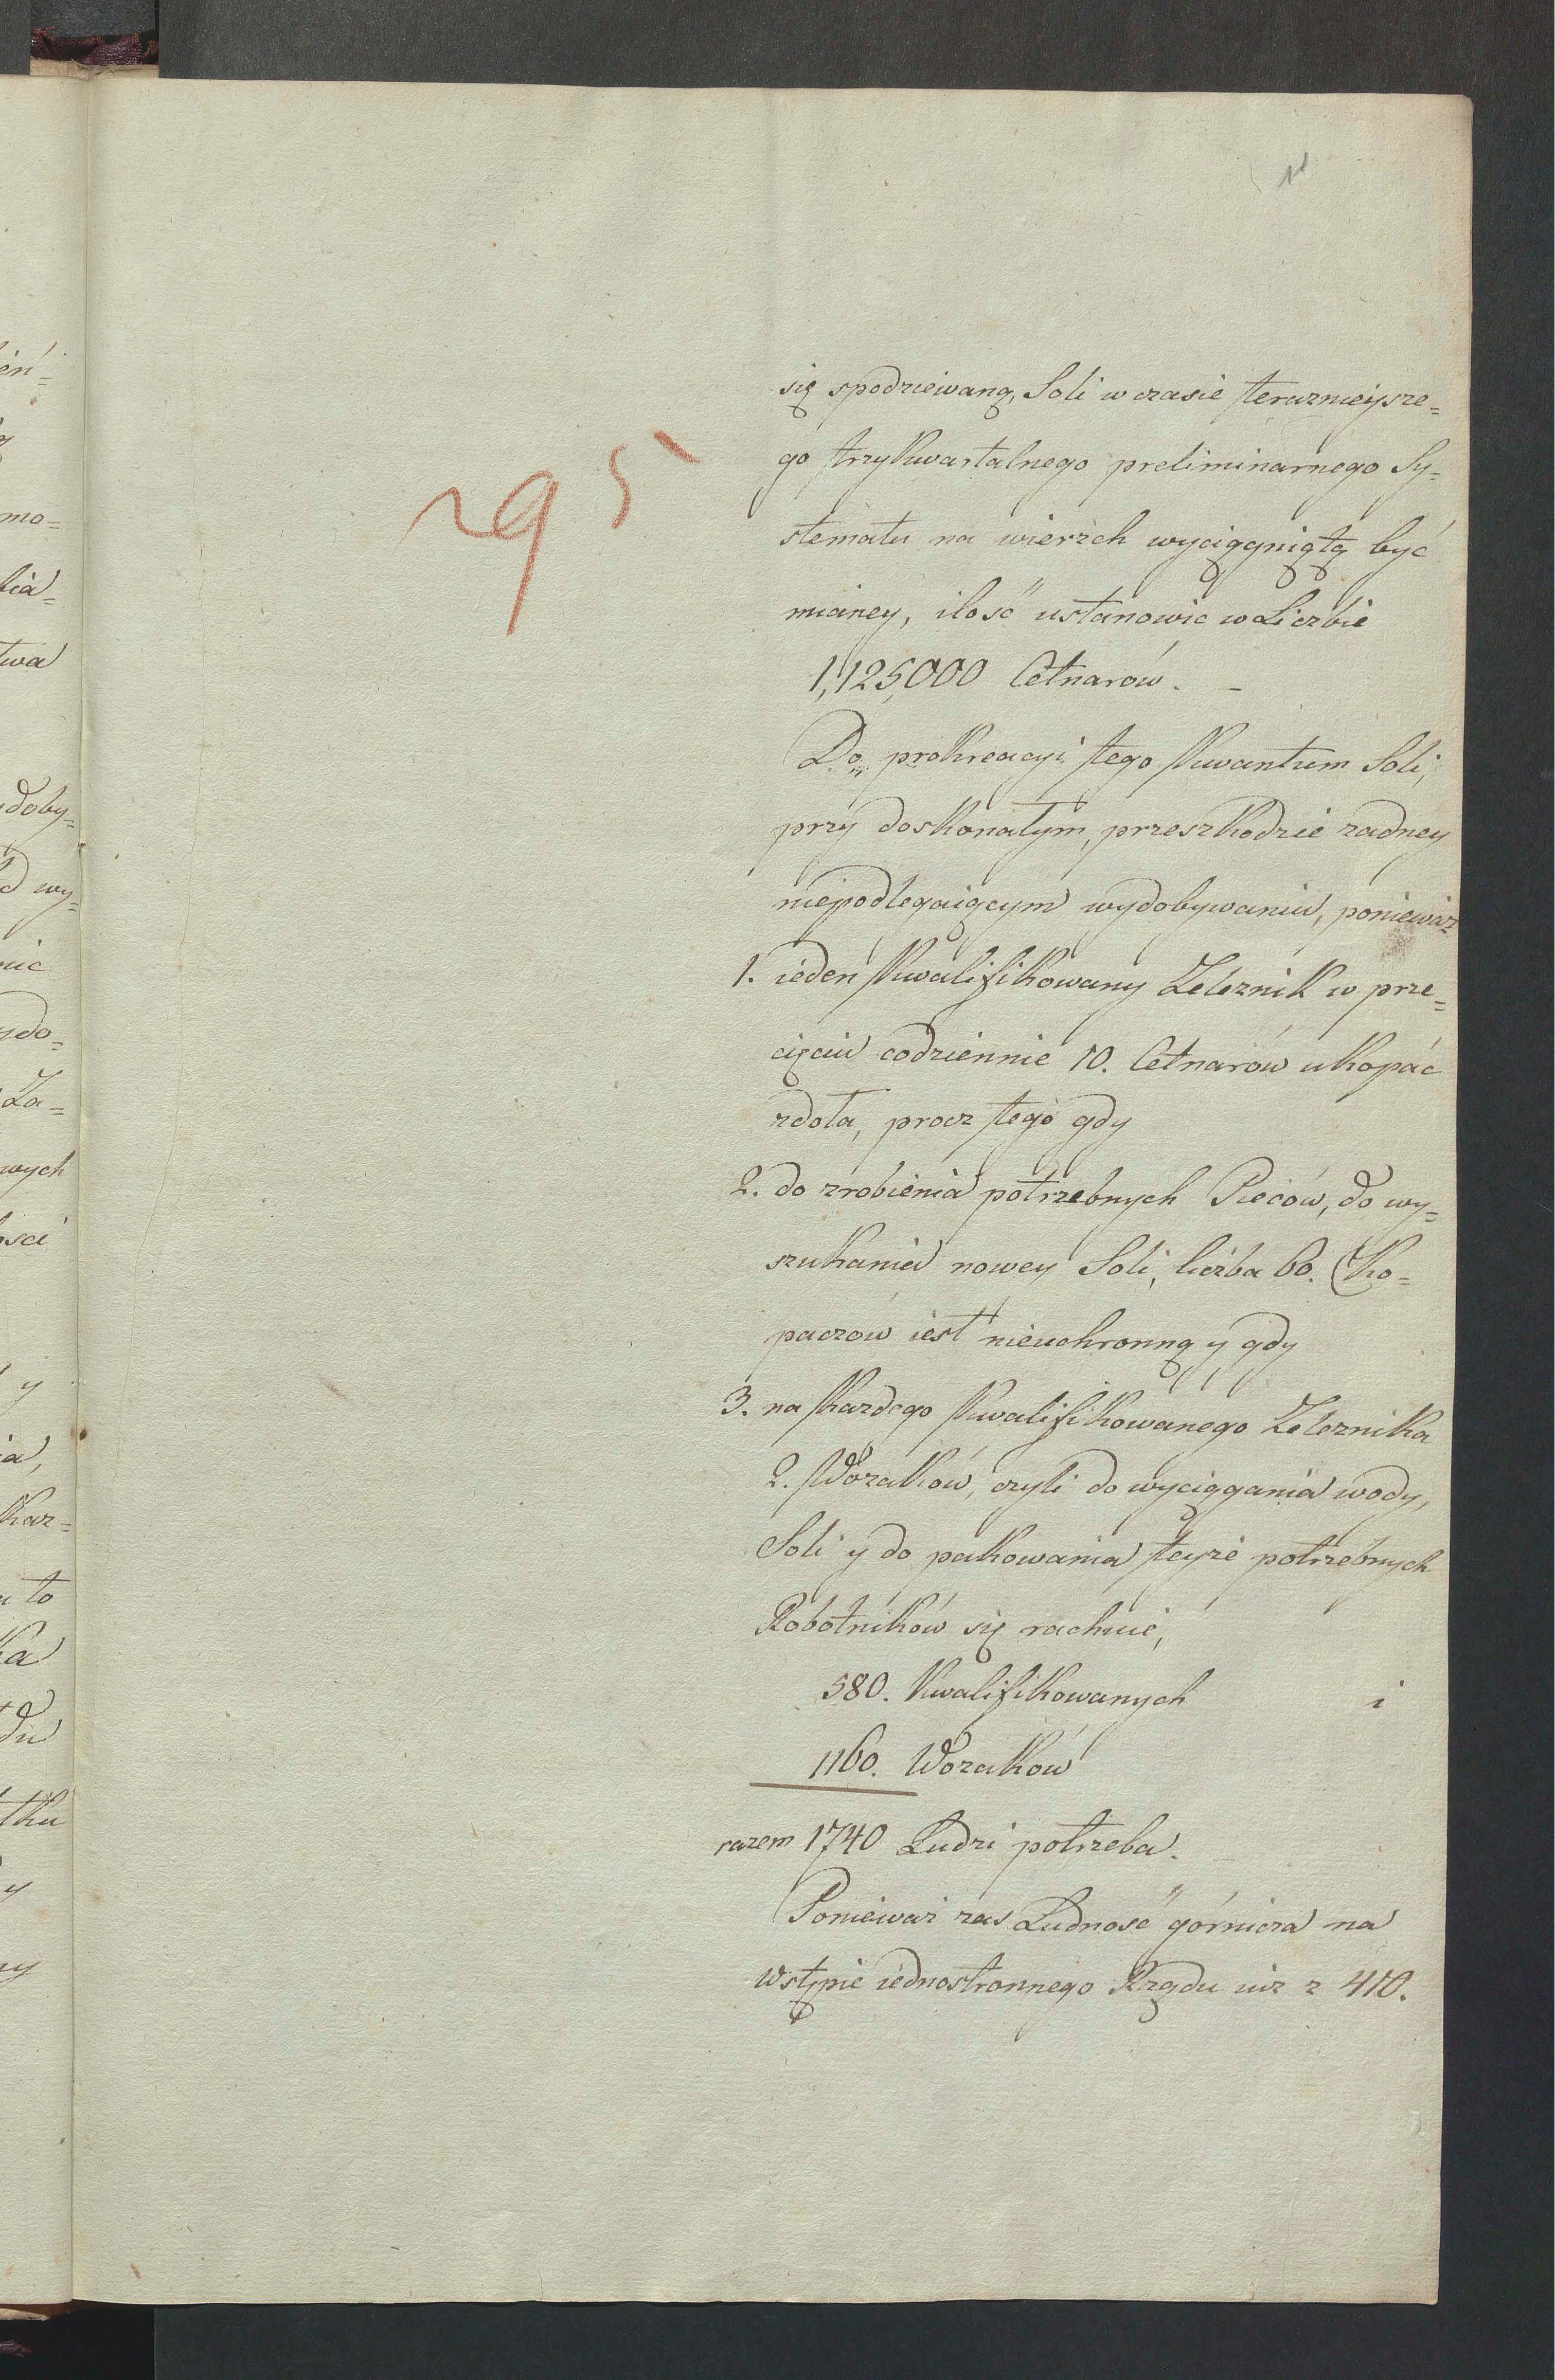 11
się spodziewaną, Soli w czasie terazneijsze=
go trzykwartalnego preliminarnego Sy=
stematu na wierzch wyciągniętą być
mianey, ilość ustanowić w Liczbie
1,125,000 Cetnarów. –
Do prokreacyi tego kwantum Soli,
przy doskonałym, przeszkodzie zadney
niepodlegaiącym wydobywaniu, poniewaz
1. ieden kwalifikowany Zeleznik w prze=
cięciu codziennie 10. Cetnarów ukopać
zdoła, procz tego gdy
2. do zrobienia potrzebnych Pieców, do wy=
szukania nowey Soli, liczba 60. Ko=
paczow iest nieuchronną y gdy
3. na kazdego kwalifikowanego Zeleznika
2. Wozaków, czyli do wyciągania wody,
Soli y do pakowania teyże potrzebnych
Robotników się rachuie,
580. kwalifikowanych i
1160. Wozaków
razem 1740 Ludzi potrzeba. –
Ponieważ zas Ludność górnicza na
wstępie iednostronnego Rządu iuz z 410.
295